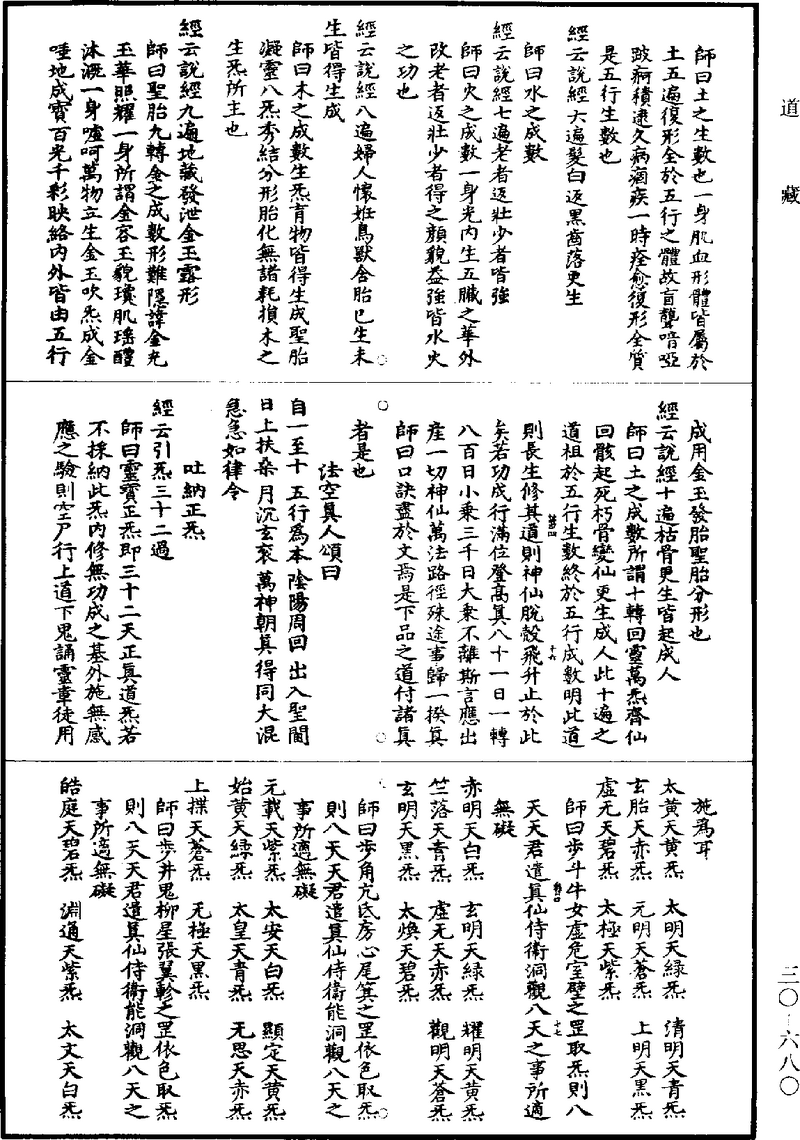 道藏
三〇—六八〇
師曰土之生數也一身肌血形體皆屬於
土五遍復形全於五行之體故盲聾喑啞
跛痾積逮久病痼疾一時痊愈復形全質
是五行生數也
經云說經六遍髮白返黑齒落更生
師曰水之成數
經云說經七遍老者返壯少者皆強
師曰火之成數一身光內生五臟之華外
改老者返壯少者得之顏貌益強皆水火
之功也
經云說經八遍婦人懷姙鳥獸含胎已生未
生皆得生成
師曰木之成數生炁育物皆得生成聖胎
凝靈八炁秀結分形胎化無諸耗損木之
生炁所主也
經云說經九遍地藏發泄金玉露形
師曰聖胎九轉金之成數形難隱諱金光
玉華照耀一身所謂金容玉貌瓊肌瑶醴
沐溉一身噓呵萬物立生金玉吹炁成金
唾地成寶百光千彩映絡內外皆由五行
成用金玉發胎聖胎分形也
經云說經十遍枯骨更生皆起成人
師曰土之成數所謂十轉回靈萬炁齊仙
回骸起死朽骨變仙更生成人此十遍之
道祖於五行生數終於五行成數明此道
則長生修其道則神仙脫殼飛升止於此
矣若功成行滿位登高真八十一日一轉
八百日小乘三千日大乘不離斯言應出
產一切神仙萬法路徑殊途事歸一揆真
師曰口訣盡於文焉是下品之道付諸真
者是也
法空真人頌曰
自一至十 五行為本 陰陽周回 出入聖閫
日上扶桒 月沉玄衮 萬神朝真 得同大混
急急如律令
吐納正炁
經云引炁三十二過
師曰靈寶正炁即三十二天正真道炁若
不採納此炁內修無功成之基外施無感
應之驗則空尸行上道下鬼誦靈章徒用
施為耳
太黃天黃炁 太明天綠炁 清明天青炁
玄胎天赤炁 元明天蒼炁 上明天黑炁
虛无天碧炁 太極天紫炁
師曰步斗牛女虛危室壁之罡取炁則八
天天君遣真仙侍衛洞觀八天之事所適
無礙
赤明天白炁 玄明天綠炁 耀明天黃炁
竺落天青炁 虛无天赤炁 觀明天蒼炁
玄明天黑炁 太煥天碧炁
師曰步角亢氐房心尾箕之罡依色取炁
則八天天君遣真仙侍衛能洞觀八天之
事所適無礙
元載天紫炁 太安天白炁 顯定天黃炁
始黃天綠炁 太皇天青炁 无思天赤炁
上揲天蒼炁 无極天黑炁
師曰步井鬼柳星張翼軫之罡依色取炁
則八天天君遣真仙侍衛能洞觀八天之
事所適無礙
皓庭天碧炁 淵通天紫炁 太文天白炁